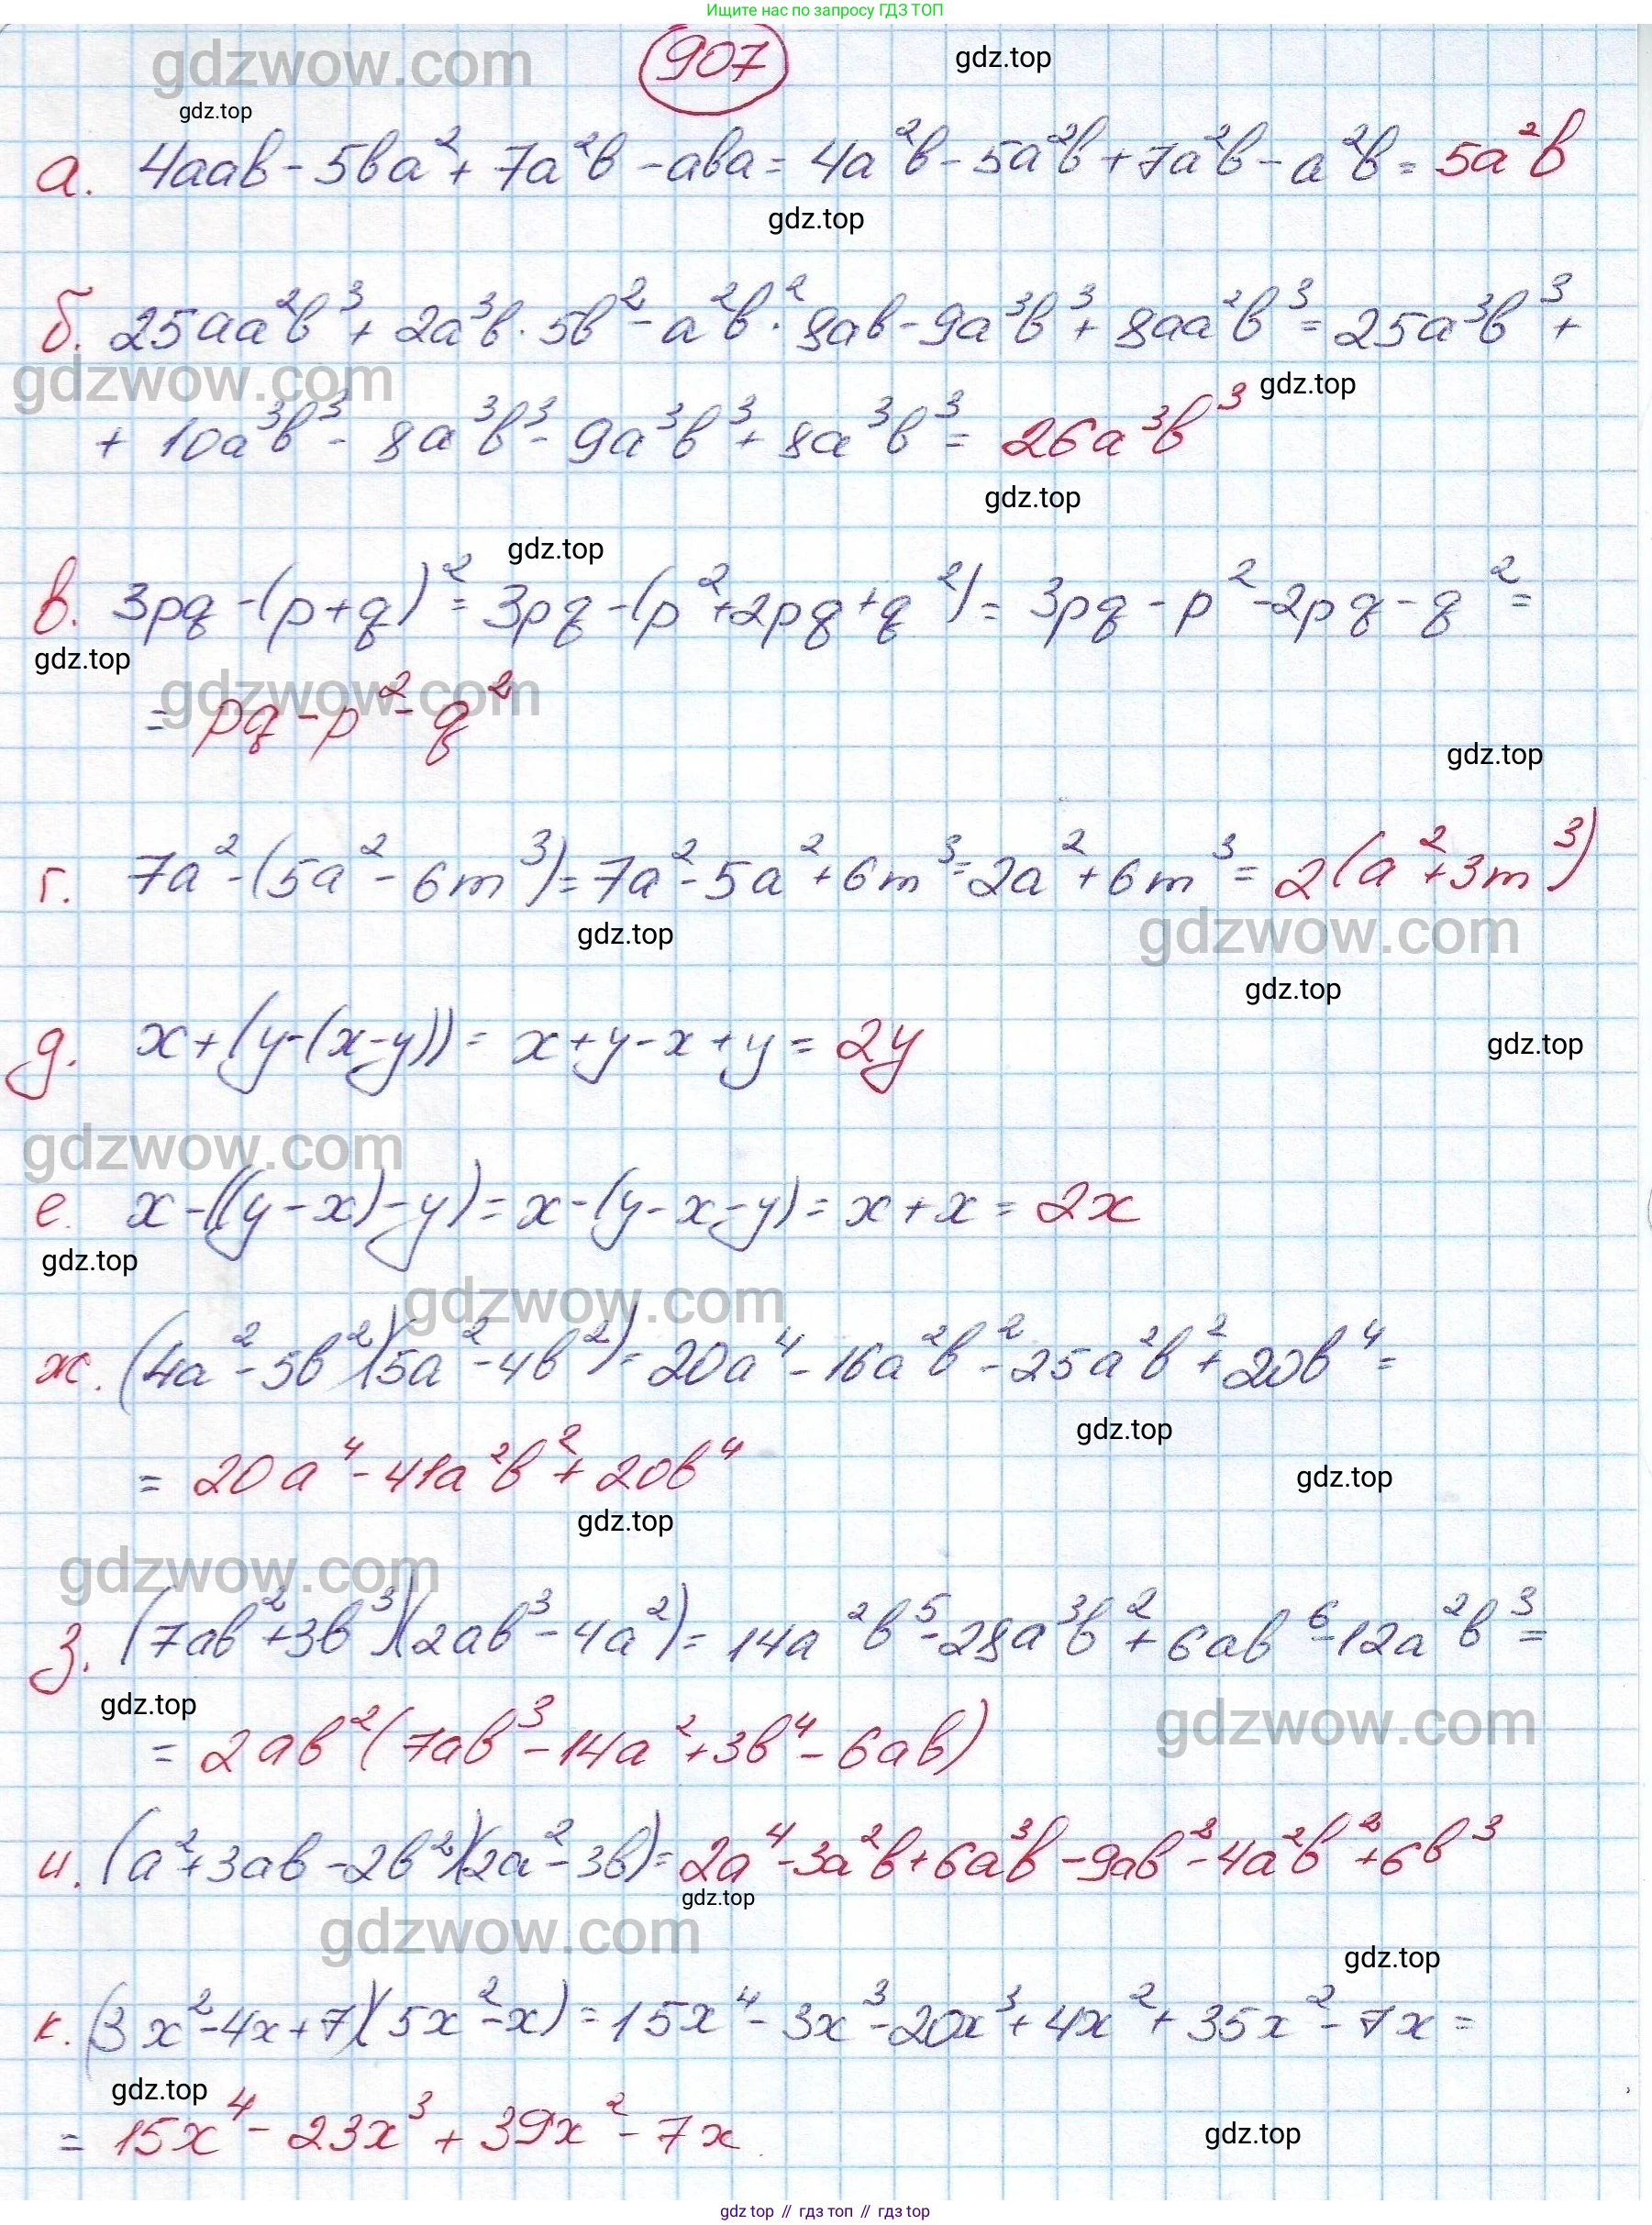 Ищите нас по запросу ГДЗ ТОП
gdzwow.com
907
gdz.top
gdz.top
а. 4aab - 5ba² + 7a²b - aba = 4a²b - 5a²b + 7a²b - a²b = 5a²b
gdz.top
б. 25aa²b³ + 2a³b · 5b² - a²b² · 8ab - 9a³b³ + 8aa²b³ = 25a³b³ +
gdzwow.com
gdz.top
+ 10a³b³ - 8a³b³ - 9a³b³ + 8a³b³ = 26a³b³
gdz.top
gdz.top
в. 3pq - (p+q)² = 3pq - (p² + 2pq + q²) = 3pq - p² - 2pq - q² =
gdz.top
gdzwow.com
= pq - p² - q²
gdz.top
г. 7a² - (5a² - 6m³) = 7a² - 5a² + 6m³ = 2a² + 6m³ = 2(a² + 3m³)
gdz.top
gdzwow.com
gdz.top
д. x + (y - (x - y)) = x + y - x + y = 2y
gdz.top
gdzwow.com
е. x - ((y - x) - y) = x - (y - x - y) = x + x = 2x
gdz.top
gdzwow.com
ж. (4a² - 5b²)(5a² - 4b²) = 20a⁴ - 16a²b² - 25a²b² + 20b⁴ =
gdz.top
= 20a⁴ - 41a²b² + 20b⁴
gdz.top
gdz.top
gdzwow.com
з. (7ab² + 3b³)(2ab³ - 4a²) = 14a²b⁵ - 28a³b² + 6ab⁶ - 12a²b³ =
gdz.top
gdzwow.com
= 2ab²(7ab³ - 14a² + 3b⁴ - 6ab)
и. (a² + 3ab - 2b²)(2a² - 3b) = 2a⁴ - 3a²b + 6a³b - 9ab² - 4a²b² + 6b³
gdz.top
gdzwow.com
gdz.top
к. (3x² - 4x + 7)(5x² - x) = 15x⁴ - 3x³ - 20x³ + 4x² + 35x² - 7x =
gdz.top
= 15x⁴ - 23x³ + 39x² - 7x
gdz.top
gdz top // гдз топ // gdz top